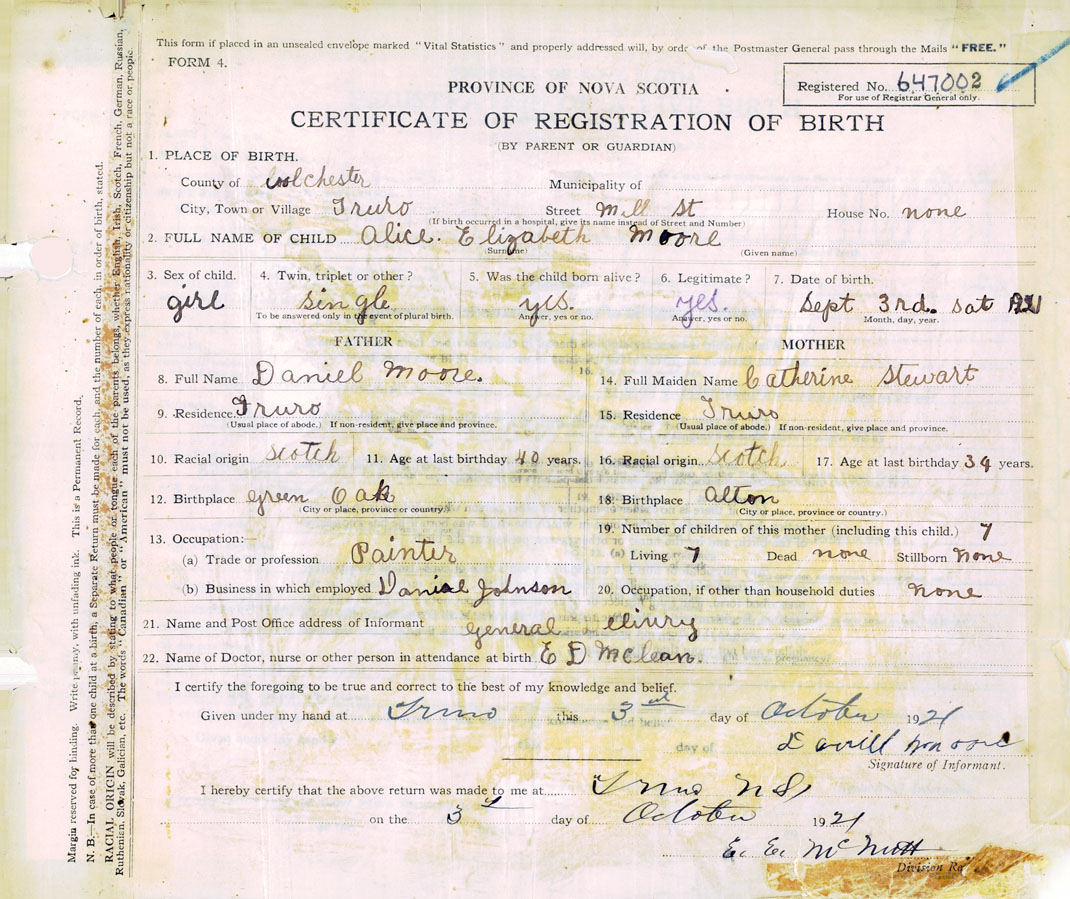 This form if placed in an unsealed envelope marked "Vital Statistics" and properly addressed will, by orde of the Postmaster General pass through the Mails "FREE."
FORM 4.
Registered No. 647002
For use of Registrar General only.
PROVINCE OF NOVA SCOTIA
CERTIFICATE OF REGISTRATION OF BIRTH
(BY PARENT OR GUARDIAN)
1. PLACE OF BIRTH.
County of Colchester Municipality of
City, Town or Village Truro Street Mill St House No. none
(If birth occurred in a hospital, give its name instead of Street and Number)
2. FULL NAME OF CHILD Alice. Elizabeth Moore
(Surname) (Given name)
3. Sex of child. 4. Twin, triplet or other? 5. Was the child born alive? 6. Legitimate? 7. Date of birth.
girl single yes. yes. Sept 3rd. sat 1921
To be answered only in the event of plural birth. Answer, yes or no. Answer, yes or no. Month, day, year.
FATHER MOTHER
8. Full Name Daniel Moore. 14. Full Maiden Name Catherine Stewart
9. Residence. Truro 15. Residence Truro
(Usual place of abode.) If non-resident, give place and province. (Usual place of abode.) If non-resident, give place and province.
10. Racial origin Scotch 11. Age at last birthday 40 years. 16. Racial origin. Scotch 17. Age at last birthday 34 years.
12. Birthplace Green Oak 18. Birthplace Alton
(City or place, province or country.) (City or place, province or country.)
19. Number of children of this mother (including this child.) 7
13. Occupation:—
(a) Trade or profession Painter (a) Living 7 Dead none Stillborn None
(b) Business in which employed Danial Johnson 20. Occupation, if other than household duties None
21. Name and Post Office address of Informant general
22. Name of Doctor, nurse or other person in attendance at birth E D Mclean.
I certify the foregoing to be true and correct to the best of my knowledge and belief.
Given under my hand at Truro this 3rd day of October 1921
Moore
Signature of Informant.
I hereby certify that the above return was made to me at Truro N S
on the 3d day of October 1921
E. E. McNutt
Division
Margin reserved for binding. Write plainly, with unfading ink. This is a Permanent Record.
N. B.—In case of more than one child at a birth, a Separate Return must be made for each, and the number of each, in order of birth, stated.
RACIAL ORIGIN will be described by stating to what people or tongue each of the parents belongs, whether English, Irish, Scotch, French, German, Russian,
Ruthenian, Slovak, Galician, etc. The words "Canadian" or "American" must not be used, as they express nationality or citizenship but not a race or people.